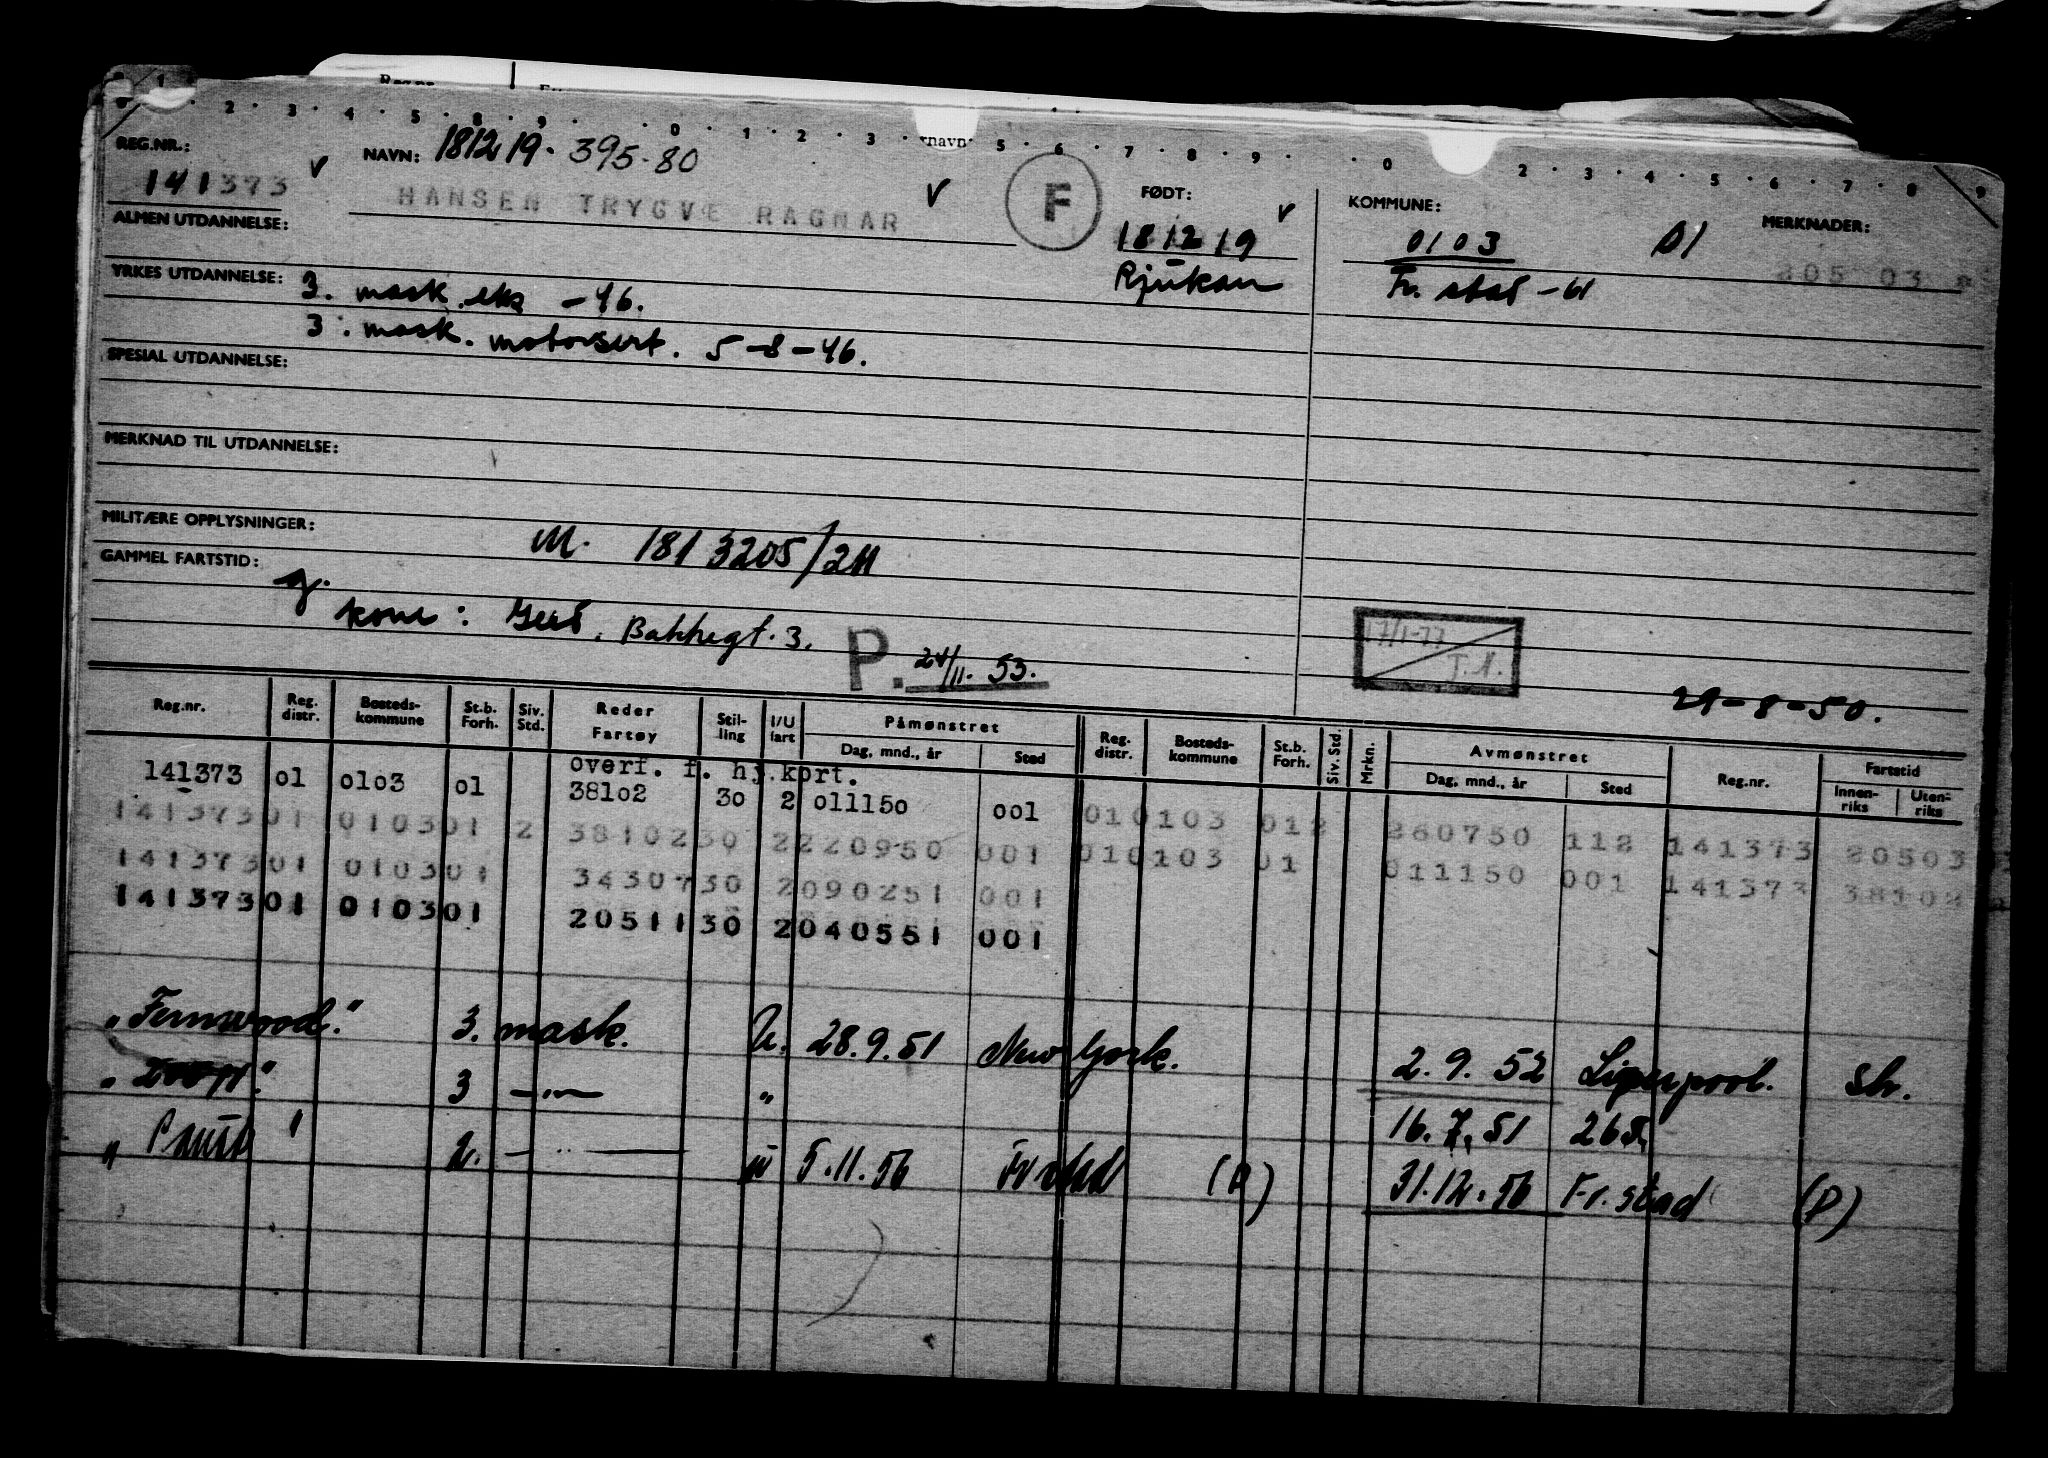 REG.NR.: NAVN: 181219. 395-80 FØDT: KOMMUNE: MERKNADER:
141373 HANSEN TRYGVE RAGNAR F 18 12 19 0103
ALMEN UTDANNELSE: Rjukan Fr. stad
YRKES UTDANNELSE: 3. mask. eks -46.
3. mask. motorsert. 5-8-46.
SPESIAL UTDANNELSE:
MERKNAD TIL UTDANNELSE:
MILITÆRE OPPLYSNINGER: M. 181 3205/2H
GAMMEL FARTSTID: g.
kone: Gerd, Bakkegt. 3.
P. 24/11. 53. 17/1-77 29-8-50.
Reg.nr. Reg. distr. Bosteds-kommune St.b. Forh. Siv. Std. Reder Fartøy Stil-ling I/U fart Påmønstret Dag, mnd., år Sted Reg. distr. Bosteds-kommune St.b. Forh. Siv. Std. Mrkn. Avmønstret Dag, mnd., år Sted Reg.nr. Fartstid Innen-riks Uten-riks
overf. f. hj.kort.
141373 01 0103 01 38102 30 2 011150 001
141373 01 0103 01 2 38102 30 2 220950 001 01 0103 01 2 260750 112 141373 20503
141373 01 0103 01 34307 30 2 090251 001 01 0103 01 011150 001 141373 38102
141373 01 0103 01 20511 30 2 040551 001
"Fernwood." 3. mask. U. 28.9.51 New York. 2.9.52 Liverpool.
3 —"— " 16.7.51 265
2. —"— 5.11.56 Fr stad (P) 31.12.56 Fr. stad (P)